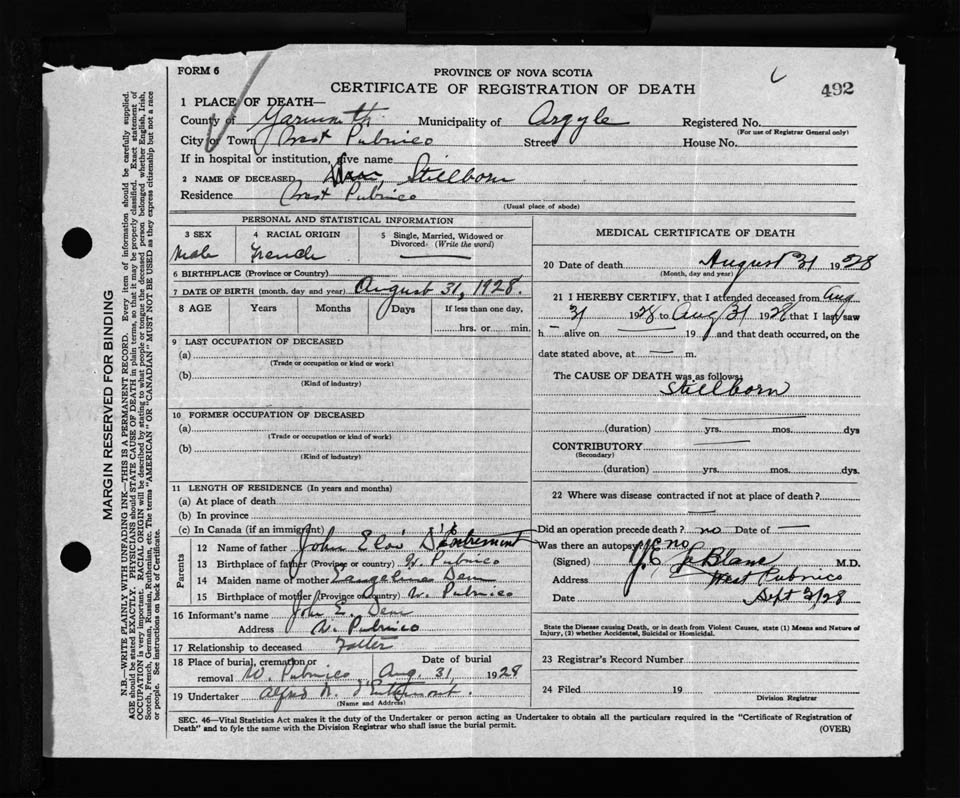 FORM 6
PROVINCE OF NOVA SCOTIA
CERTIFICATE OF REGISTRATION OF DEATH
492
1 PLACE OF DEATH—
County of Yarmouth Municipality of Argyle Registered No.
(For use of Registrar General only)
City or Town West Pubnico Street House No.
If in hospital or institution, give name
2 NAME OF DECEASED Stillborn
Residence West Pubnico
(Usual place of abode)
PERSONAL AND STATISTICAL INFORMATION
3 SEX 4 RACIAL ORIGIN 5 Single, Married, Widowed or
Divorced (Write the word)
Male French
6 BIRTHPLACE (Province or Country)
7 DATE OF BIRTH (month, day and year) August 31, 1928.
8 AGE Years Months Days If less than one day,
hrs. or min.
9 LAST OCCUPATION OF DECEASED
(a)
(Trade or occupation or kind or work)
(b)
(Kind of industry)
10 FORMER OCCUPATION OF DECEASED
(a)
(Trade or occupation or kind of work)
(b)
(Kind of industry)
11 LENGTH OF RESIDENCE (In years and months)
(a) At place of death
(b) In province
(c) In Canada (if an immigrant)
Parents
12 Name of father John Eloi D'Entremont
13 Birthplace of father (Province or country) W. Pubnico
14 Maiden name of mother
15 Birthplace of mother (Province or Country) W. Pubnico
16 Informant's name John E. Dem
Address W. Pubnico
17 Relationship to deceased Father
18 Place of burial, cremation or Date of burial
removal W. Pubnico Aug. 31, 1928
19 Undertaker Alfred N. d'Entremont.
(Name and Address)
MEDICAL CERTIFICATE OF DEATH
20 Date of death August 31 1928
(Month, day and year)
21 I HEREBY CERTIFY, that I attended deceased from Aug
31 1928 to Aug 31 1928 that I last saw
h — alive on — 19 and that death occurred, on the
date stated above, at — m.
The CAUSE OF DEATH was as follows:
Stillborn
(duration) yrs. mos. dys
CONTRIBUTORY
(Secondary)
(duration) yrs. mos. dys.
22 Where was disease contracted if not at place of death?
Did an operation precede death? no Date of —
Was there an autopsy? no
(Signed) J.E. LeBlanc M.D.
Address West Pubnico
Date Sept 3/28
State the Disease causing Death, or in death from Violent Causes, state (1) Means and Nature of
Injury, (2) whether Accidental, Suicidal or Homicidal.
23 Registrar's Record Number
24 Filed 19
Division Registrar
SEC. 46—Vital Statistics Act makes it the duty of the Undertaker or person acting as Undertaker to obtain all the particulars required in the "Certificate of Registration of
Death" and to fyle the same with the Division Registrar who shall issue the burial permit.
(OVER)
MARGIN RESERVED FOR BINDING
N.B.—WRITE PLAINLY WITH UNFADING INK—THIS IS A PERMANENT RECORD. Every item of information should be carefully supplied.
AGE should be stated EXACTLY. PHYSICIANS should STATE CAUSE OF DEATH in plain terms, so that it may be properly classified. Exact statement of
OCCUPATION is very important. RACIAL ORIGIN will be described by stating to what people or tongue the deceased person belonged whether English, Irish,
Scotch, French, German, Russian, Ruthenian, etc. The terms "AMERICAN" OR "CANADIAN" MUST NOT BE USED as they express citizenship but not a race
or people. See instructions on back of Certificate.